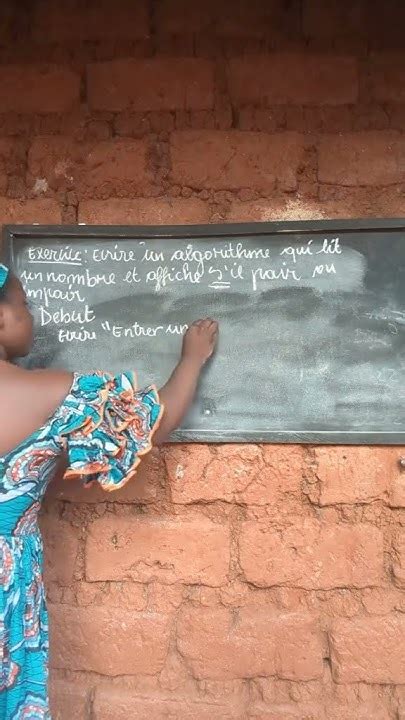 Exercice : Ecrire un algorithme qui lit
un nombre et affiche s'il pair ou
impair
Debut
Ecrire "Entrer un